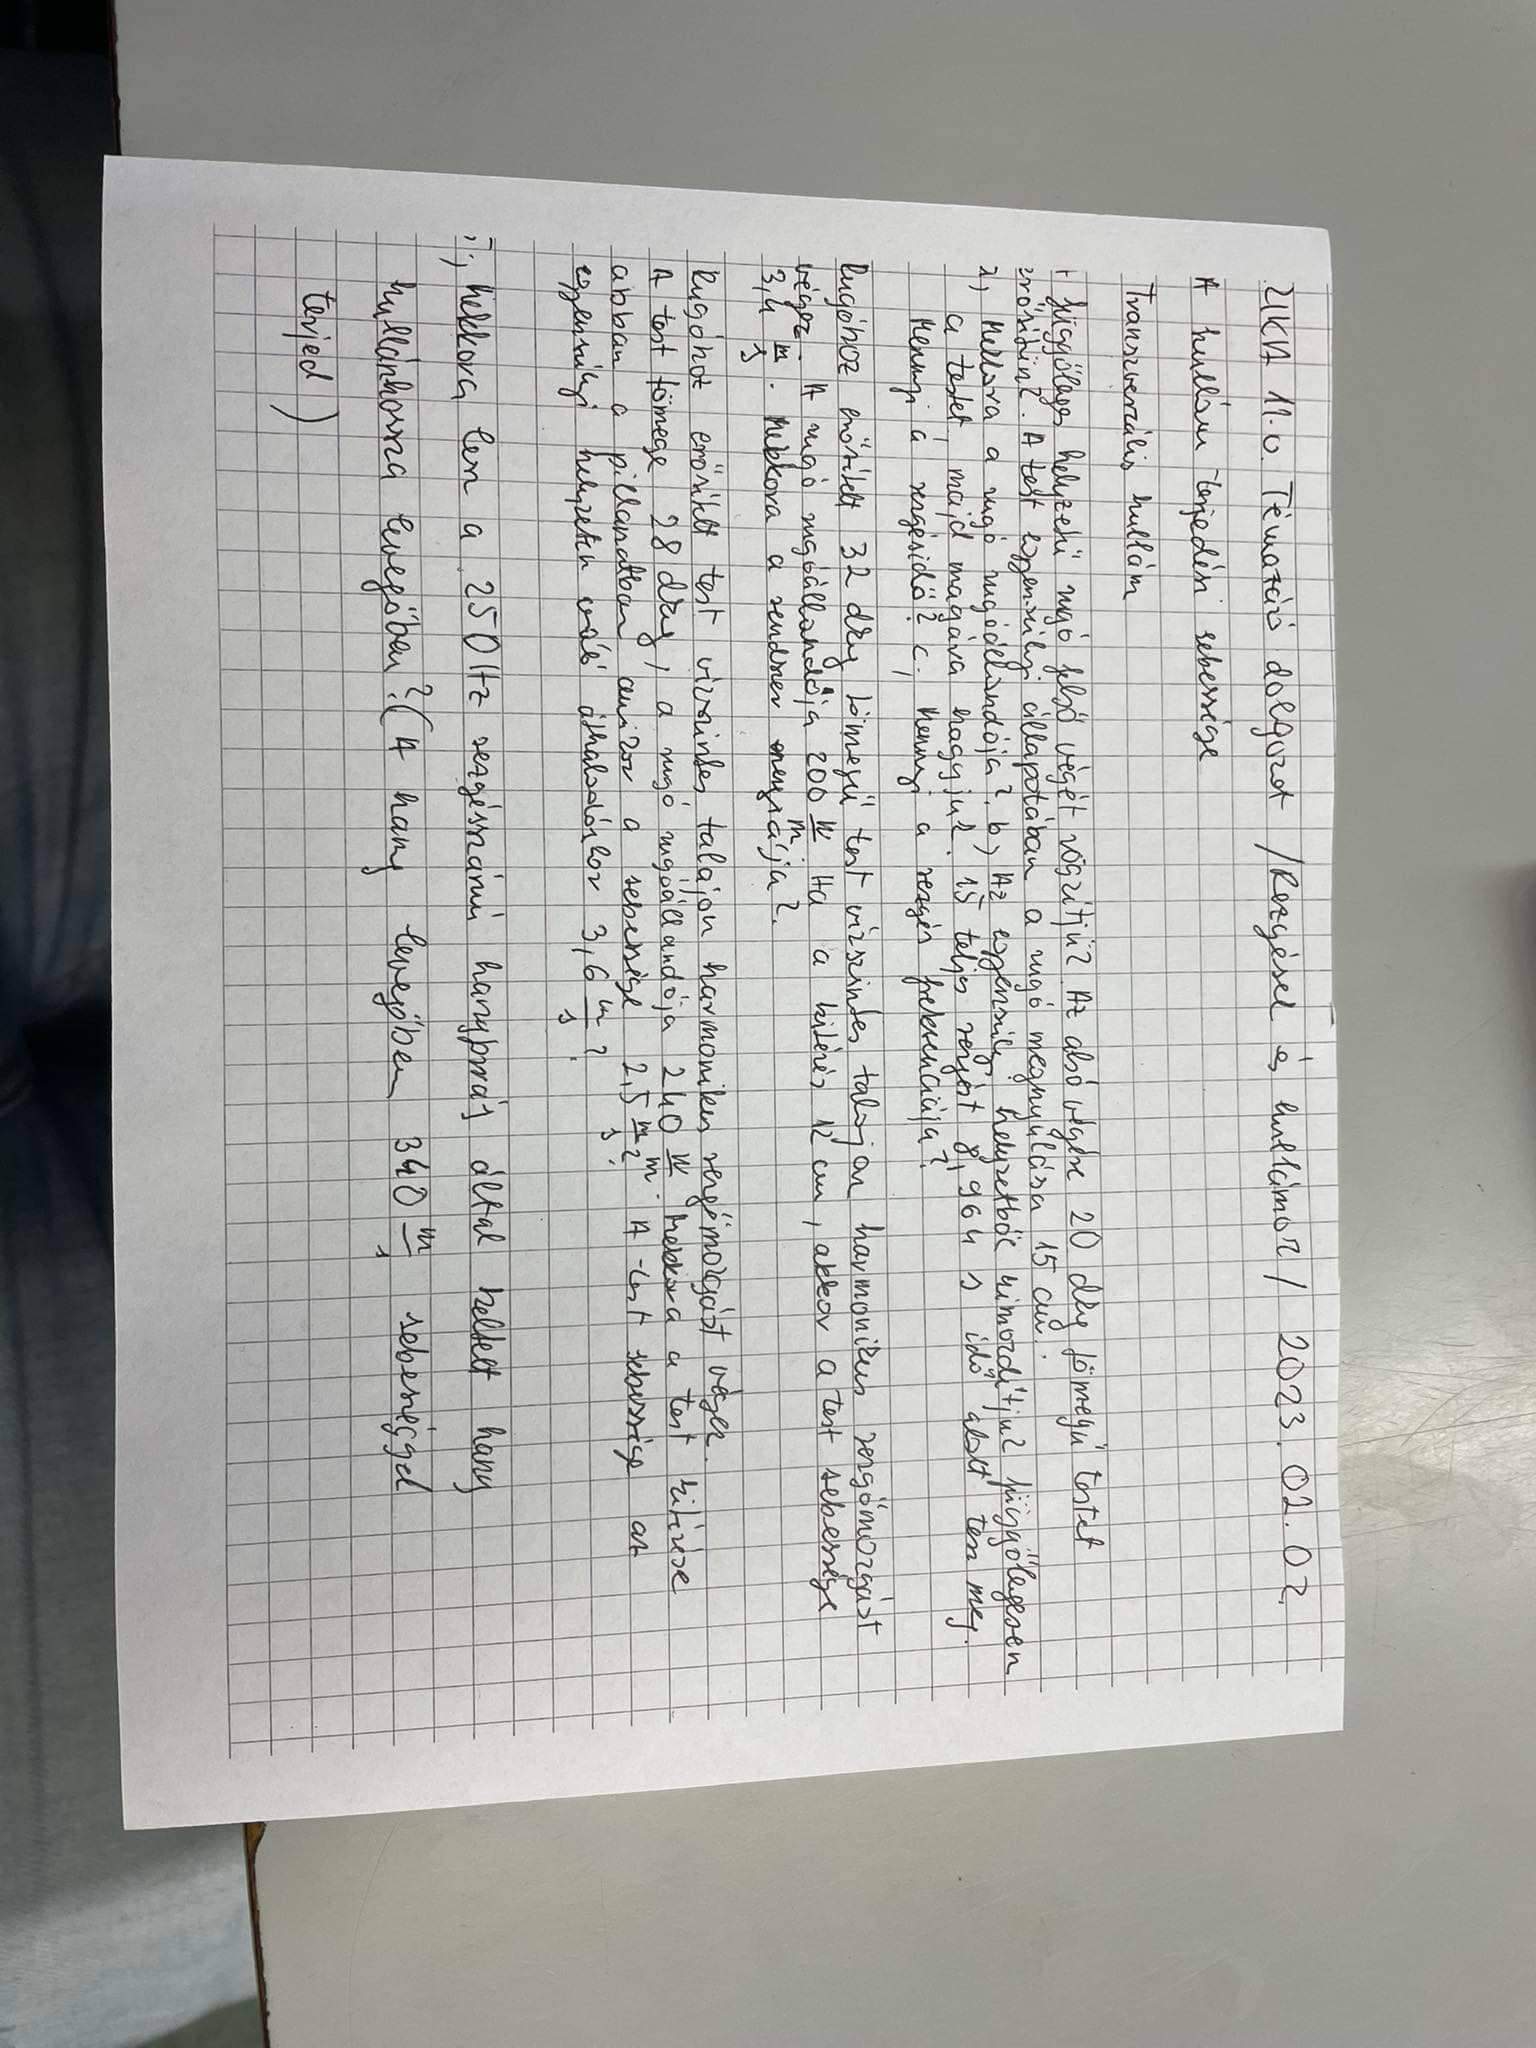 FIZIKA 11.o. Témazáró dolgozat /Rezgések és hullámok/ 2023.02.02.
A hullám terjedési sebessége
Transzverzális hullám
függőleges helyzetű rugó felső végét rögzítjük. Az alsó végére 20 dkg tömegű testet
erősítünk. A test egyensúlyi állapotában a rugó megnyúlása 15 cm.
a) Mekkora a rugó rugóállandója? b) Az egyensúlyi helyzetből kimozdítjuk függőlegesen
a testet, majd magára hagyjuk. 15 teljes rezgést 8,964 s idő alatt tesz meg.
Mennyi a rezgésidő? c, Mennyi a rezgés frekvenciája?
Rugóhoz erősített 32 dkg tömegű test vízszintes talajon harmonikus rezgőmozgást
végez. A rugó rugóállandója 200 N/m Ha a kitérés 12 cm, akkor a test sebessége
3,4 m/s. Mekkora a rendszer energiája?
Rugóhoz erősített test vízszintes talajon harmonikus rezgőmozgást végez.
A test tömege 28 dkg, a rugó rugóállandója 240 N/m. Mekkora a test kitérése
abban a pillanatban amikor a sebessége 2,5 m/s? A test sebessége az
egyensúlyi helyzeten való áthaladáskor 3,6 m/s?
, Mekkora lesz a 250 Hz rezgésszámú hangforrás által keltett hang
hullámhossza levegőben? (A hang levegőben 340 m/s sebességgel
terjed)